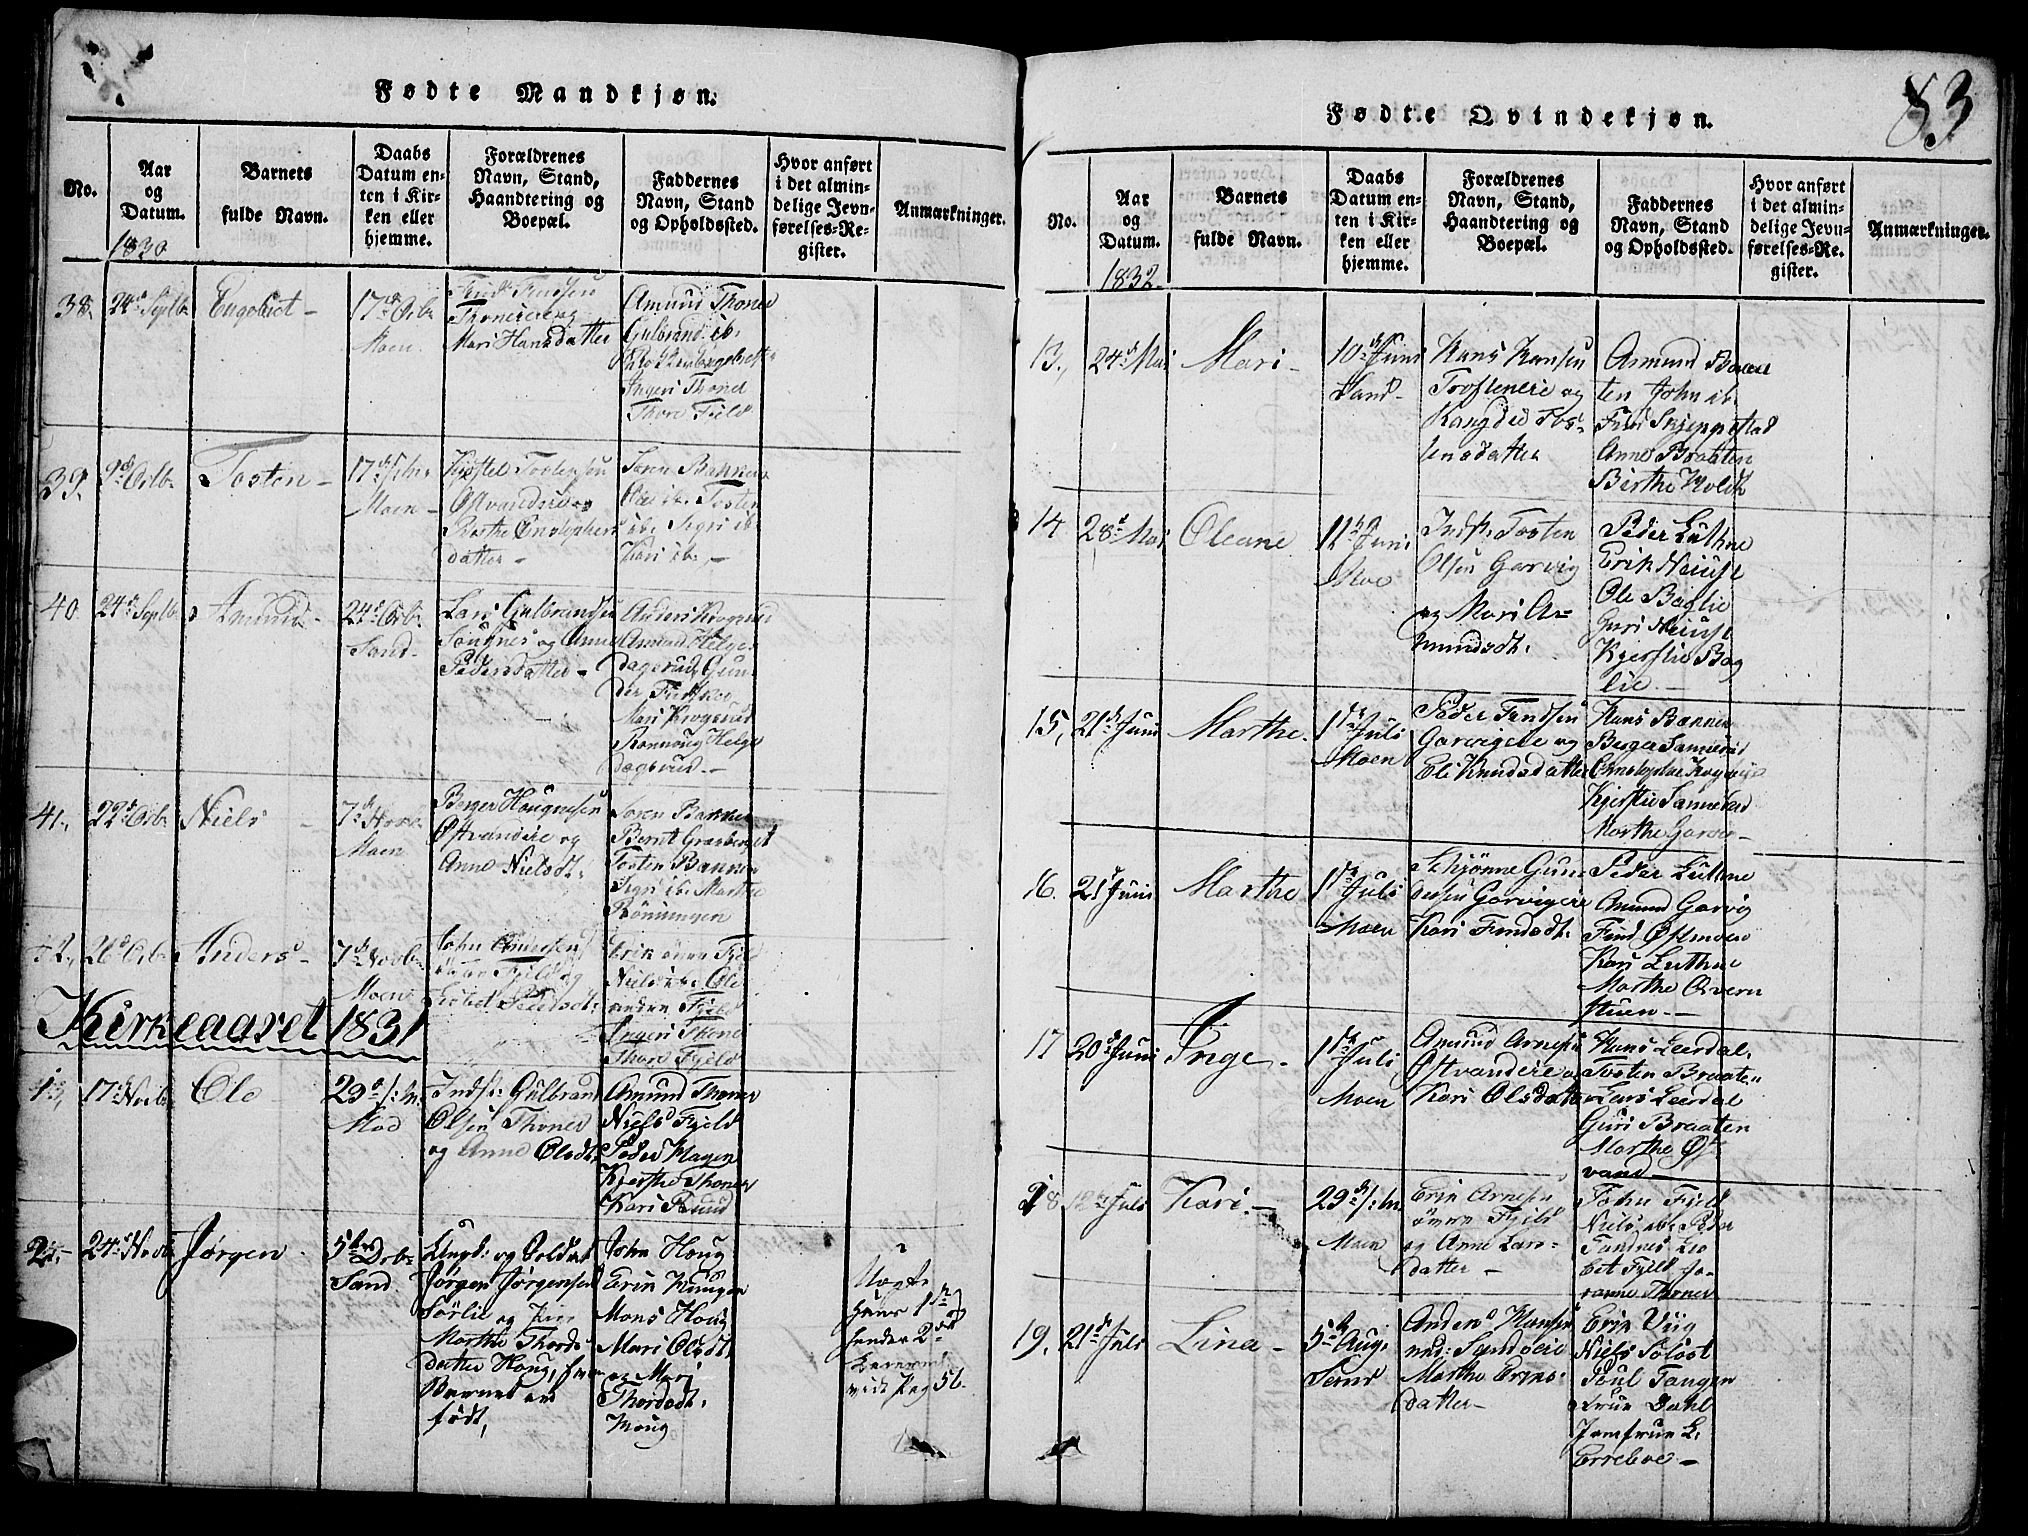 Fødte Mandkjøn.
No.
Aar
og
Datum.
Barnets
fulde Navn.
Daabs
Datum en-
ten i Kir-
ken eller
hjemme.
Forældrenes
Navn, Stand,
Haandtering og
Boepæl.
Faddernes
Navn, Stand
og Opholdssted.
Hvor anført
i det almin-
delige Jevn-
førelses-Re-
gister.
Anmærkninger.
1830
38.
24d Septbr
Engebret
17d Octbr
Moen
Thonereie og
Mari Hansdatter
Amund Thoner
Gulbrand ib.
Ingeri Thoner
Thore Fjeld
39.
9d Octbr
Tosten
17d s: m:
Moen
Kjøstel Tostensen
Østvandeie og
Berthe Christophers
datter
Soren Bakken
Ole ib. Tosten
ib. Segri ib.
Kari ib.
40
24d Septbr
Amund
24d Octbr
Sand
Lars Gulbrandsen
Sandnes og Anne
Pedersdatter
Anders Krogsrud
Amund Helge
dagsrud, Gun
der
Mari Krogsrud
Rannoug Helge
dagsrud
41.
22d Octbr
Niels
7d Novbr
Moen
Berger Haagensen
Østvandeie og
Anne Nielsdt:
Soren Bakken
Bernt Grasberget
Tosten Bakken
Segri ib. Marthe
Rønningen
42.
26d Octbr
Anders
7d Novbr
Moen
John Andersen
øvre Fjeld og
Erik øvre Fjeld
Niels ib. Ole
nedre Fjeld
Ingeri Thoner
Thore Fjeld
Kirkeaaret 1831
1.
17d Novbr
Ole
29d s: m:
Moe
Indst: Gulbrand
Olsen Thoner
og Anne Olsdt.
Amund Thoner
Niels Fjeld
Peder Hagen
Kjersti Thoner
Kari Ruud
2.
24d Novbr
Jørgen
5te Decbr
Sand
Ungk: og Soldat
Jørgen Jørgensen
Sørlie og Pige
Marthe Thords
datter Houg,
Barnet er
født,
John Houg
Erik Haugen
Mons Houg
Mari Olsdt.
og Mari
Thordsdt.
Houg
hans 1ste og
hendes 2det
Leiermaal
vide Pag 56.
83
Fødte Qvindekjøn.
No.
Aar
og
Datum.
Barnets
fulde Navn.
Daabs
Datum en-
ten i Kir-
ken eller
hjemme.
Forældrenes
Navn, Stand,
Haandtering og
Boepæl.
Faddernes
Navn, Stand
og Opholdssted.
Hvor anført
i det almin-
delige Jevn-
førelses-Re-
gister.
Anmærkninger.
1832
13.
24d Mai
Mari
10d Juni
Sand
Hans Hansen
Toftenere og
Rangdie Tos-
tensdatter
Amund Braa
ten John ib.
Siri Skjeggestad
Anne Braaten
Birthe Holth
14.
28d Mai
Oleane
11te Juni
Moe
Indst: Tosten
Olsen Garvig
og Mari A-
mundsdt.
Peder Luthne
Erik Neuse
Ole Baglie
Guri Neuse
Kjerstie Bag
lie
15.
21d Juni
Marthe
1te Juli
Moen
Peder Findsen
Garvigeie og
Eli Knudsdatter
Hans Bakken
Berger Sannerud
Kjerstie Sannerud
Marthe Garder
16.
21d Juni
Marthe
1te Juli
Moen
Schjønne Gun
dersen Garvigeie
Kari Findsdt.
Peder Luthne
Amund Garvig
Find Østmoen
Kari Luthne
Marthe Qvern
stuen
17
20d Juni
Inge
1te Juli
Moen
Amund Arnesen
Østvandeie og
Kari Olsdatter
Hans Leerdal
Tosten Braaten
Lars Leerdal
Guri Braaten
Marthe Øst
vand
18
12te Juli
Kari
29d s: m.
Moen
Erik Arnesen
øvre Fjeld
og Anne Lars-
datter
John Fjeld
Niels ib. Peder
Sandnes Lis
bet Fjeld Jo-
ranne Thoner
19.
21d Juli
Lina
5te Aug.
Sand
Anders Hansen
ned: Sandøeie
Marthe Eriks-
datter
Erik Viig
Niels Soløst
Poul Tangen
Frue Dahl
Jomfrue L.
Erreboe